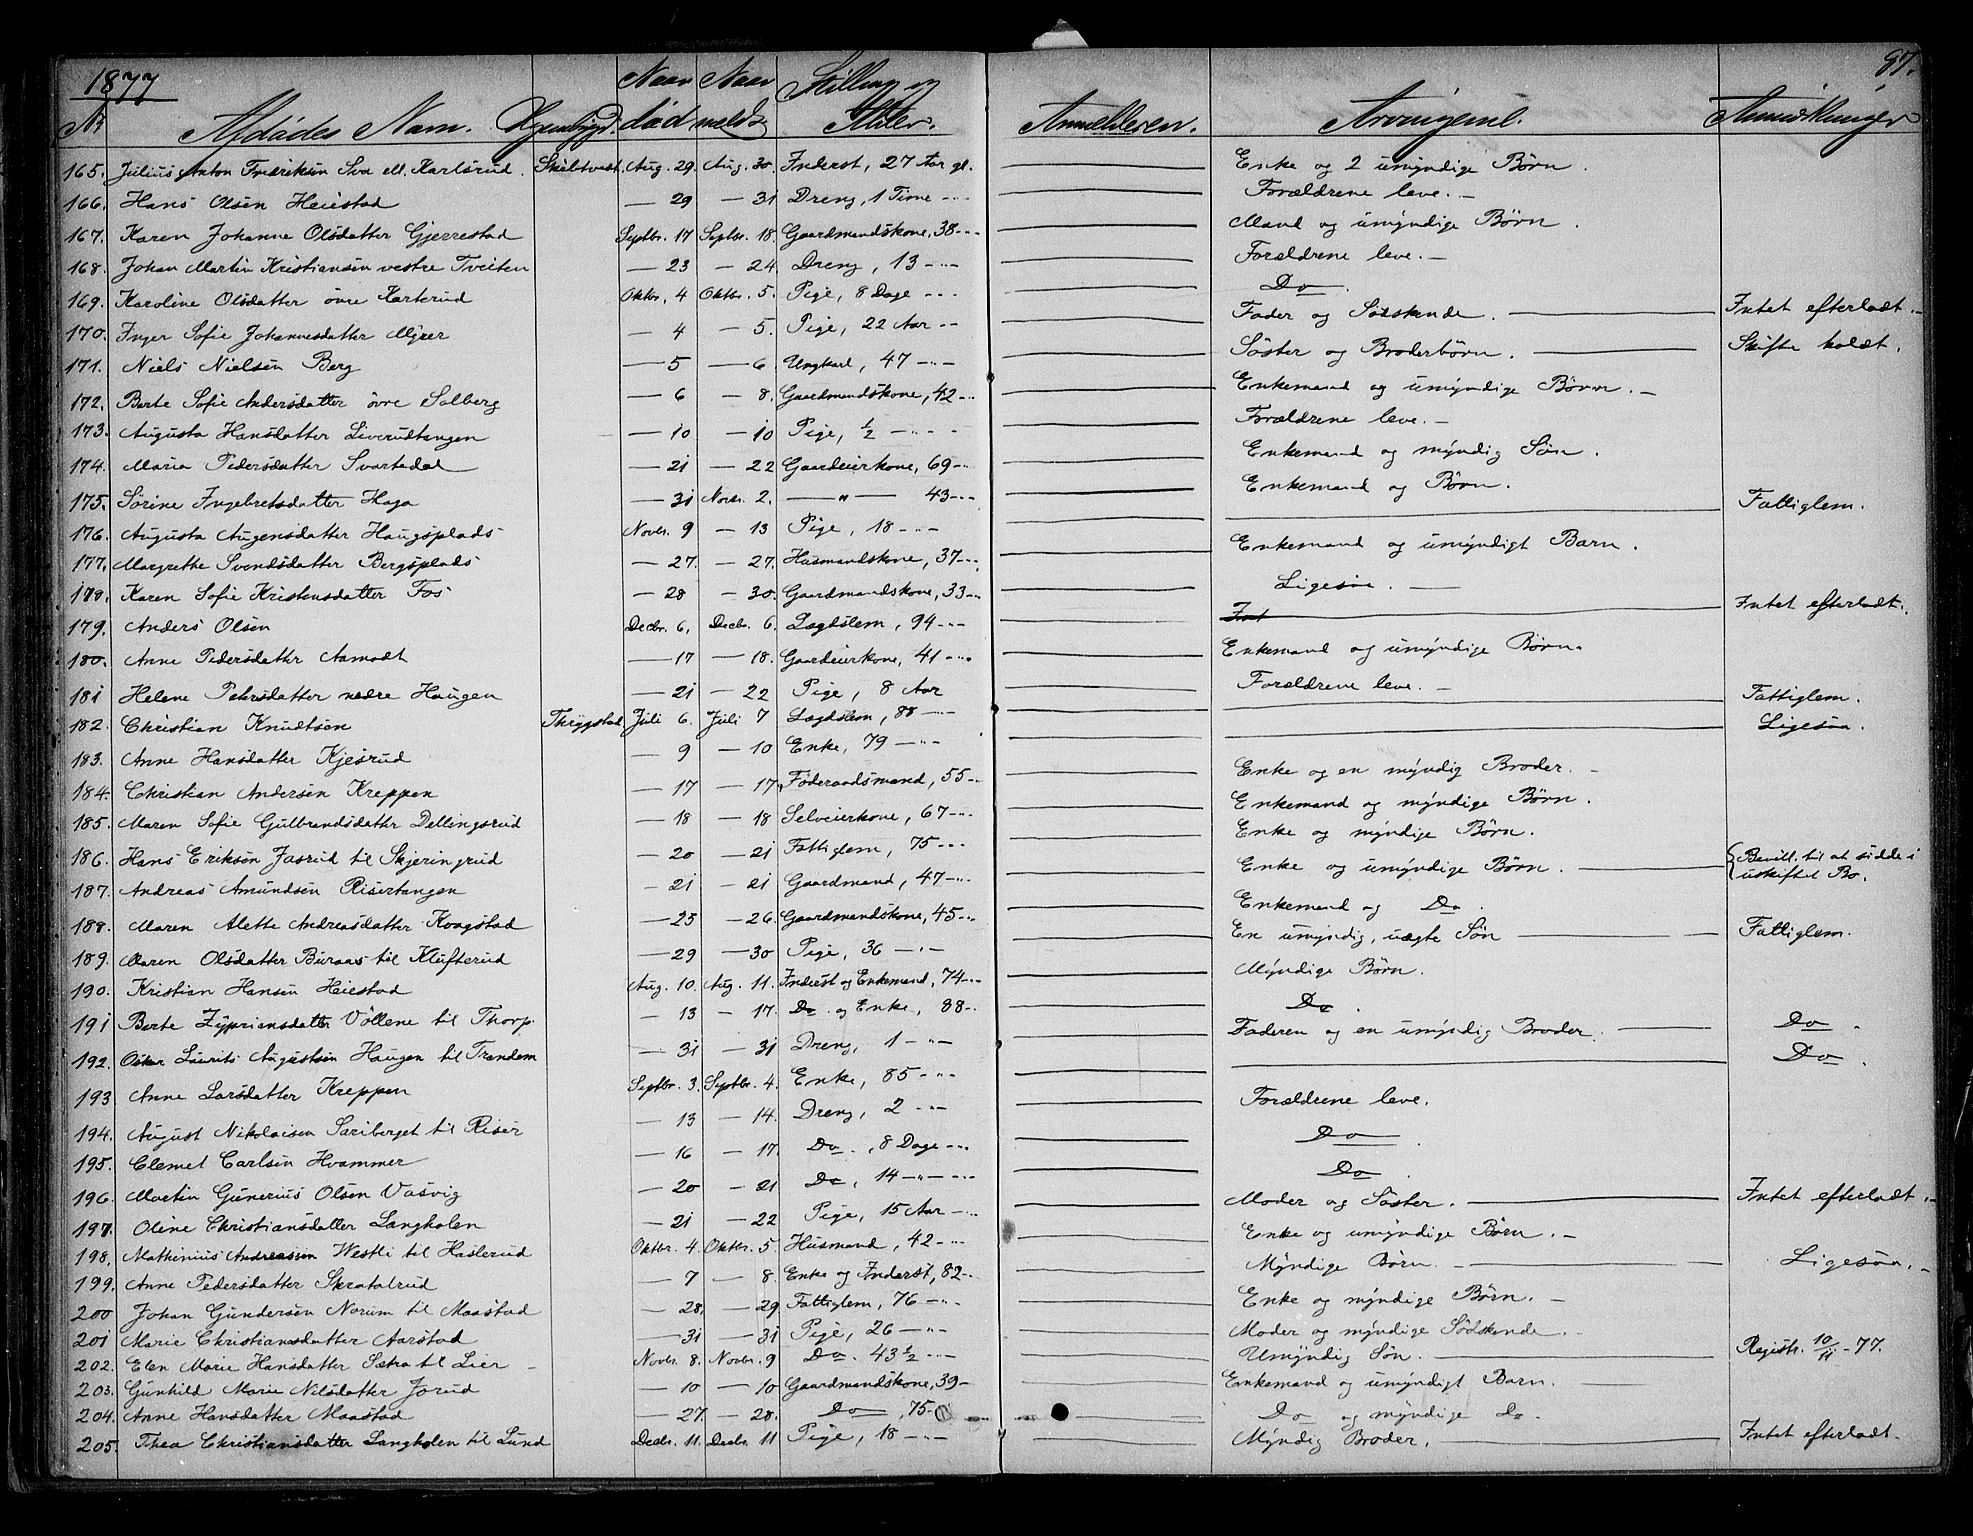 1877
87.
No Afdødes Navn. Hjembygd. Naar død Naar meldt Stilling og Alder. Anmelderen. Arvingerne. Anmærkninger
165. Julius Anton Fredriksen Sva ell. Karlsrud. Skibtvedt. Aug. 29. Aug. 30. Inderst, 27 Aar gl. — Enke og 2 umyndige Børn.
166. Hans Olsen Heiestad — 29 — 31 Dreng, 1 Time -"- — Forældrene leve. —
167. Karen Johanne Olsdatter Gjerrestad Septbr. 17 Septbr. 18. Gaardmandskone, 38 -"- — Mand og umyndige Børn.
168. Johan Martin Kristiansen vestre Tveiten — 23 — 24. Dreng, 13 -"- — Forældrene leve. —
169. Karoline Olsdatter øvre Karterud Oktbr. 4 Oktbr. 5. Pige, 8 Dage -"- — Do.
170. Inger Sofie Johannesdatter Myrer — 4 — 5. Pige, 22 Aar -"- — Fader og Sødskende. — Intet efterladt. —
171. Niels Nielsen Berg — 5 — 6 Ungkarl, 47 -"- — Søster og Broderbørn. — Skifte holdt.
172. Berte Sofie Andersdatter øvre Solberg — 6 — 8. Gaardmandskone, 42 -"- — Enkemand og umyndige Børn. —
173. Augusta Hansdatter Liverudtangen — 10 — 10 Pige, ½ -"- — Forældrene leve. —
174. Maria Pedersdatter Svartedal — 21 — 22 Gaardeierkone, 69 -"- — Enkemand og myndig Søn.
175. Sørine Ingebretsdatter Haga — 31 Novr. 2. —"— 43 -"- — Enkemand og Børn.
176. Augusta Augensdatter Haugsplads Novbr. 9 — 13 Pige, 18 -"- — — Fattiglem.
177. Margrethe Svendsdatter Bergsplads — 27. — 27. Husmandskone, 37 -"- — Enkemand og umyndigt Barn.
178. Karen Sofie Kristensdatter Fos — 28 — 30. Gaardmandskone, 33 -"- — Ligesaa. —
179. Anders Olsen Decbr. 6. Decb. 6. Lægdslem, 94 -"- — Int — Intet efterladt.
180. Anne Pedersdatter Aamodt — 17 — 18. Gaardeierkone, 41 -"- — Enkemand og umyndige Børn.
181 Helene Petersdatter nedre Haugen — 21 — 22 Pige, 8 Aar — Forældrene leve. —
182. Christian Knudtsen Thrygstad Juli 6. Juli 7 Lægdslem, 88 -"- — — Fattiglem.
183. Anne Hansdatter Kjesrud — 9 — 10 Enke, 79 -"- — — Ligesaa.
184. Christian Andersen Kreppen — 17 — 17. Føderaadsmand, 55 -"- — Enke og en myndig Broder. —
185. Maren Sofie Gulbrandsdatter Dellingsrud — 18 — 18 Selveierkone, 67 -"- — Enkemand og myndige Børn.
186. Hans Eriksen Jasrud til Skjeringrud — 20 — 21 Fattiglem, 75 -"- — Enke og myndige Børn.
187. Andreas Amundsen Risertangen — 21 — 21 Gaardmand, 47 -"- — Enke og umyndige Børn. — Bevill. til at sidde i uskiftet Bo.
188. Maren Alette Andreasdatter Kragstad — 25 — 26. Gaardmandskone, 45 -"- — Enkemand og Do.
189. Maren Olsdatter Buraas til Klufterud — 29 — 30 Pige, 36 -"- — En umyndig, uægte Søn — Fattiglem.
190. Kristian Hansen Heiestad Aug. 10. Aug. 11. Inderst og Enkemand, 74 -"- — Myndige Børn.
191 Berte Zypriansdatter Vøllene til Thorp. — 13 — 17. Do. og Enke, 88 -"- — Do.
192. Oskar Laurits Augustsen Haugen til Trandem — 31 — 31 Dreng, 1 -"- — Faderen og en umyndig Broder. — Do.
193 Anne Larsdatter Kreppen Septbr. 3. Septbr. 4. Enke, 85 -"- — — Do.
194. August Nikolaisen Sariberget til Riser — 13 — 14. Dreng, 2 -"- — Forældrene leve.
195. Clemet Carlsen Hvammer — 16 — 17. Do., 8 Dage -"- — Do.
196. Martin Gunerius Olsen Vasvig — 20 — 21 Do, 14 -"- -"- — Do.
197. Oline Christiansdatter Langholen — 21 — 22 Pige, 15 Aar -"- — Moder og Søster. — Intet efterladt. —
198. Mathinius Andreassen Westli til Haslerud Oktbr. 4. Oktbr. 5. Husmand, 42 -"- — Enke og umyndige Børn. —
199. Anne Pedersdatter Skratalrud — 7 — 8. Enke og Inderst, 82 -"- — Myndige Børn. — Ligesaa. —
200 Johan Gundersen Norum til Maastad — 28. — 29. Fattiglem, 76 -"- — Enke og myndige Børn. —
201 Marie Christiansdatter Aarstad — 31 — 31 Pige, 26 -"- — Moder og myndige Sødskende. —
202. Elen Marie Hansdatter Sætra til Lier — Novbr. 8. Novbr. 9 Do. 43 ½ -"- — Umyndig Søn. — Registr. 10/11 - 77.
203. Gunhild Marie Nilsdatter Jorud — 10 — 10 Gaardmandskone, 39 - — Enkemand og umyndigt Barn.
204. Anne Hansdatter Maastad — 27. — 28. Do, 75 — Do og myndige Do.
205. Thea Christiansdatter Langholen til Lund Decbr. 11. Decbr. 11 Pige, 18 -"- — Myndig Broder. — Intet efterladt. -